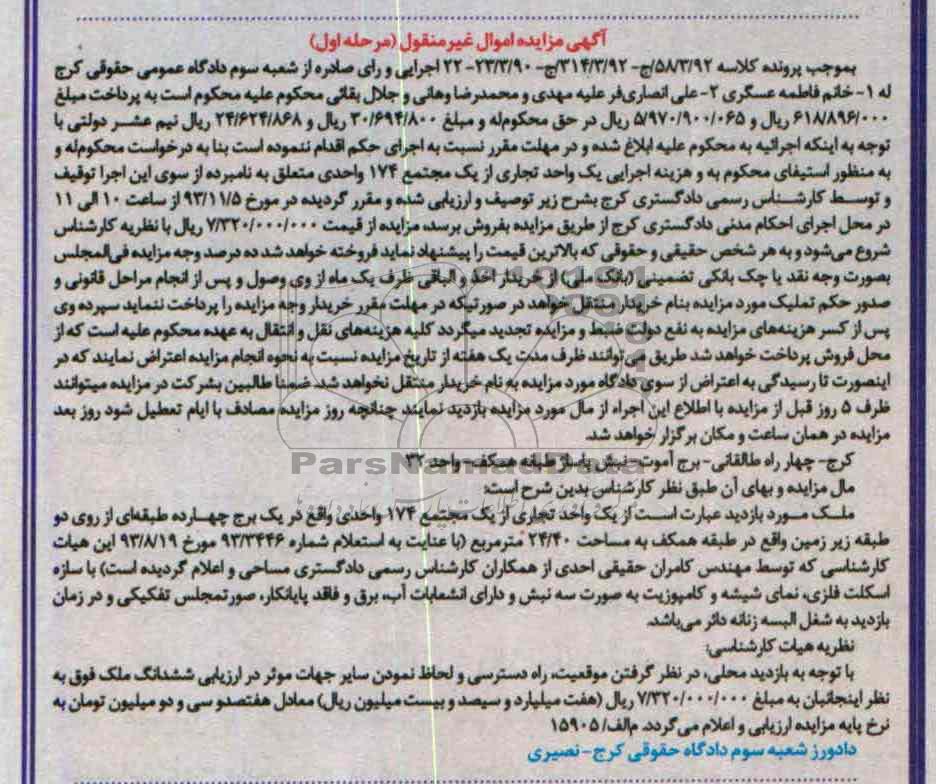 آگهی مزایده اموال غیرمنقول (مرحله اول)
بموجب پرونده کلاسه ۵۸/۳/۹۲/ج- ۳۱۴/۳/۹۲/ج- ۲۳/۳/۹۰- ۲۲ اجرایی و رای صادره از شعبه سوم دادگاه عمومی حقوقی کرج
له ۱- خانم فاطمه عسگری ۲- علی انصاری‌فر علیه مهدی و محمدرضا وهانی و جلال بقائی محکوم علیه محکوم است به پرداخت مبلغ
۶۱۸/۸۹۶/۰۰۰ ریال و ۵/۹۷۰/۹۰۰/۰۶۵ ریال در حق محکوم‌له و مبلغ ۳۰/۶۹۴/۸۰۰ ریال و ۲۴/۶۲۴/۸۶۸ ریال نیم عشر دولتی با
توجه به اینکه اجرائیه به محکوم علیه ابلاغ شده و در مهلت مقرر نسبت به اجرای حکم اقدام ننموده است بنا به درخواست محکوم‌له و
به منظور استیفای محکوم به و هزینه اجرایی یک واحد تجاری از یک مجتمع ۱۷۴ واحدی متعلق به نامبرده از سوی این اجرا توقیف
و توسط کارشناس رسمی دادگستری کرج بشرح زیر توصیف و ارزیابی شده و مقرر گردیده در مورخ ۹۳/۱۱/۵ از ساعت ۱۰ الی ۱۱
در محل اجرای احکام مدنی دادگستری کرج از طریق مزایده بفروش برسد، مزایده از قیمت ۷/۳۲۰/۰۰۰/۰۰۰ ریال با نظریه کارشناس
شروع می‌شود و به هر شخص حقیقی و حقوقی که بالاترین قیمت را پیشنهاد نماید فروخته خواهد شد ده درصد وجه مزایده فی‌المجلس
بصورت وجه نقد یا چک بانکی تضمینی (بانک ملی) از خریدار اخذ و الباقی ظرف یک ماه از وی وصول و پس از انجام مراحل قانونی و
صدور حکم تملیک مورد مزایده بنام خریدار منتقل خواهد در صورتیکه در مهلت مقرر خریدار وجه مزایده را پرداخت ننماید سپرده وی
پس از کسر هزینه‌های مزایده به نفع دولت ضبط و مزایده تجدید میگردد کلیه هزینه‌های نقل و انتقال به عهده محکوم علیه است که از
محل فروش پرداخت خواهد شد طریق می‌توانند ظرف مدت یک هفته از تاریخ مزایده نسبت به نحوه انجام مزایده اعتراض نمایند که در
اینصورت تا رسیدگی به اعتراض از سوی دادگاه مورد مزایده به نام خریدار منتقل نخواهد شد. ضمنا طالبین بشرکت در مزایده میتوانند
ظرف ۵ روز قبل از مزایده با اطلاع این اجراء از مال مورد مزایده بازدید نمایند چنانچه روز مزایده مصادف با ایام تعطیل شود روز بعد
مزایده در همان ساعت و مکان برگزار خواهد شد.
کرج- چهار راه طالقانی- برج آموت- نبش پاساژ طبقه همکف- واحد ۳۲
ParsNamadData
مال مزایده و بهای آن طبق نظر کارشناس بدین شرح است:
ملک مورد بازدید عبارت است از یک واحد تجاری از یک مجتمع ۱۷۴ واحدی واقع در یک برج چهارده طبقه‌ای از روی دو
طبقه زیر زمین واقع در طبقه همکف به مساحت ۲۴/۴۰ مترمربع (با عنایت به استعلام شماره ۹۳/۳۴۴۶ مورخ ۹۳/۸/۱۹ این هیات
کارشناسی که توسط مهندس کامران حقیقی احدی از همکاران کارشناس رسمی دادگستری مساحی و اعلام گردیده است) با سازه
اسکلت فلزی، نمای شیشه و کامپوزیت به صورت سه نبش و دارای انشعابات آب، برق و فاقد پایانکار، صورتمجلس تفکیکی و در زمان
بازدید به شغل البسه زنانه دائر می‌باشد.
نظریه هیات کارشناسی:
با توجه به بازدید محلی، در نظر گرفتن موقعیت، راه دسترسی و لحاظ نمودن سایر جهات موثر در ارزیابی ششدانگ ملک فوق به
نظر اینجانبان به مبلغ ۷/۳۲۰/۰۰۰/۰۰۰ ریال (هفت میلیارد و سیصد و بیست میلیون ریال) معادل هفتصدو سی و دو میلیون تومان به
نرخ پایه مزایده ارزیابی و اعلام می‌گردد. م‌الف/ ۱۵۹۰۵
دادورز شعبه سوم دادگاه حقوقی کرج- نصیری